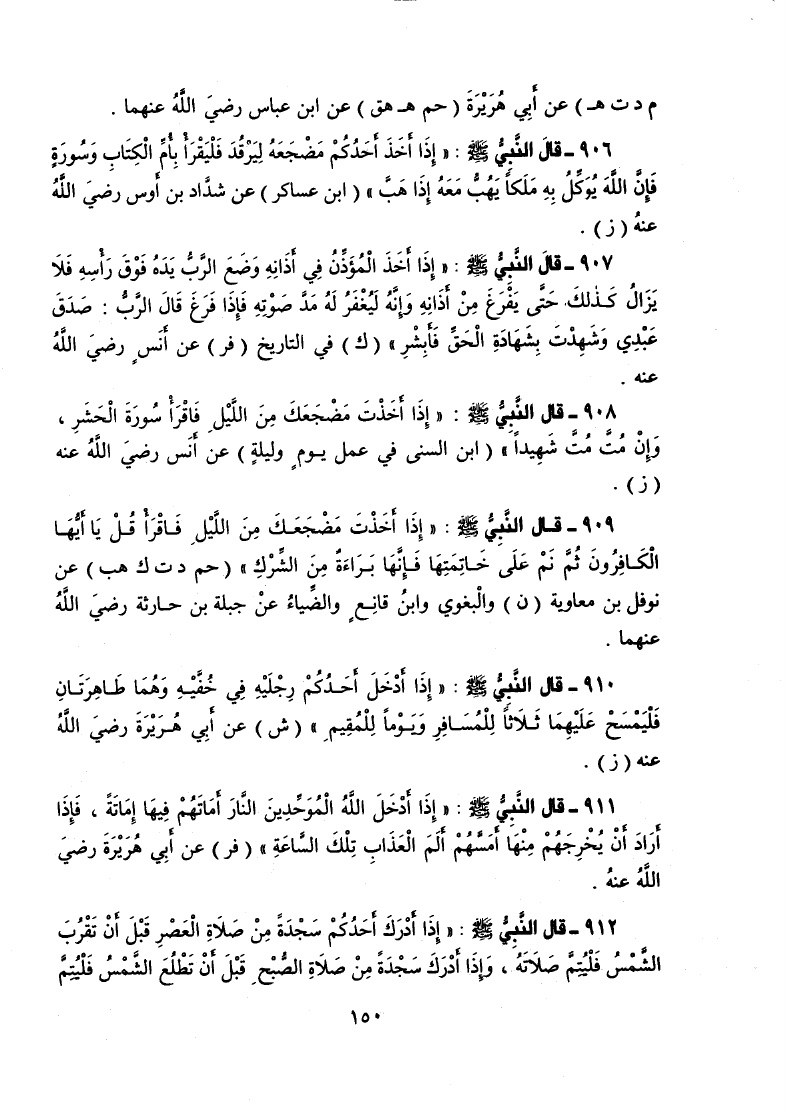 م د ت هـ ) عن أَبِي هُرَيْرَةَ ( حم هـ هق ) عن ابن عباس رضيَ اللَّهُ عنهما .
٩٠٦ - قالَ النَّبِيُّ ﷺ : « إِذَا أَخَذَ أَحَدُكُمْ مَضْجَعَهُ لِيَرْقُدَ فَلْيَقْرَأْ بِأُمِّ الْكِتَابِ وَسُورَةٍ
فَإِنَّ اللَّهَ يُوَكِّلُ بِهِ مَلَكاً يَهُبُّ مَعَهُ إِذَا هَبَّ » ( ابن عساكر ) عن شدَّاد بن أَوس رضيَ اللَّهُ
عنهُ ( ز ) .
٩٠٧ - قالَ النَّبِيُّ ﷺ : « إِذَا أَخَذَ الْمُؤَذِّنُ فِي أَذَانِهِ وَضَعَ الرَّبُّ يَدَهُ فَوْقَ رَأْسِهِ فَلَا
يَزَالُ كَذٰلِكَ حَتَّى يَفْرَغَ مِنْ أَذَانِهِ وَإِنَّهُ لَيُغْفَرُ لَهُ مَدَّ صَوْتِهِ فَإِذَا فَرَغَ قَالَ الرَّبُّ : صَدَقَ
عَبْدِي وَشَهِدْتَ بِشَهَادَةِ الْحَقِّ فَأَبْشِرْ » ( ك ) في التاريخ ( فر ) عن أَنَسٍ رضيَ اللَّهُ
عنه .
٩٠٨ - قال النَّبِيُّ ﷺ : « إِذَا أَخَذْتَ مَضْجَعَكَ مِنَ اللَّيْلِ فَاقْرَأْ سُورَةَ الْحَشْرِ ،
وَإِنْ مُتَّ مُتَّ شَهِيداً » ( ابن السنى في عمل يـومٍ وليلةٍ ) عن أَنَس رضيَ اللَّهُ عنه
( ز ) .
٩٠٩ - قـال النَّبِيُّ ﷺ : « إِذَا أَخَذْتَ مَضْجَعَـكَ مِنَ اللَّيْلِ فَـاقْرَأْ قُـلْ يَا أَيُّهَا
الْكَافِرُونَ ثُمَّ نَمْ عَلَى خَـاتِمَتِهَا فَـإِنَّهَا بَـرَاءَةٌ مِنَ الشِّرْكِ » ( حم د ت ك هب ) عن
نوفل بن معاوية ( ن ) والْبغوي وابنُ قانـعٍ والضِّياءُ عنْ جبلة بن حـارثة رضيَ اللَّهُ
عنهما .
٩١٠ - قال النَّبِيُّ ﷺ : « إِذَا أَدْخَلَ أَحَـدُكُمْ رِجْلَيْهِ فِي خُفَّيْـهِ وَهُمَا طَـاهِرَتَـانِ
فَلْيَمْسَحْ عَلَيْهِمَا ثَـلَاثاً لِلْمُسَـافِرِ وَيَـوْماً لِلْمُقِيمِ » ( ش ) عن أَبِي هُـرَيْرَةَ رضيَ اللَّهُ
عنه ( ز ) .
٩١١ - قال النَّبِيُّ ﷺ : « إِذَا أَدْخَلَ اللَّهُ الْمُوَحِّدِينَ النَّارَ أَمَاتَهُمْ فِيهَا إِمَاتَةً ، فَإِذَا
أَرَادَ أَنْ يُخْرِجَهُمْ مِنْهَا أَمَسَّهُمْ أَلَمَ الْعَذَابِ تِلْكَ السَّاعَةَ » ( فر ) عن أَبِي هُرَيْرَةَ رضيَ
اللَّهُ عنهُ .
٩١٢ - قال النَّبِيُّ ﷺ : « إِذَا أَدْرَكَ أَحَدُكُمْ سَجْدَةً مِنْ صَلَاةِ الْعَصْرِ قَبْلَ أَنْ تَغْرُبَ
الشَّمْسُ فَلْيُتِمَّ صَلَاتَهُ ، وَإِذَا أَدْرَكَ سَجْدَةً مِنْ صَلَاةِ الصُّبْحِ قَبْلَ أَنْ تَطْلُعَ الشَّمْسُ فَلْيُتِمَّ
١٥٠